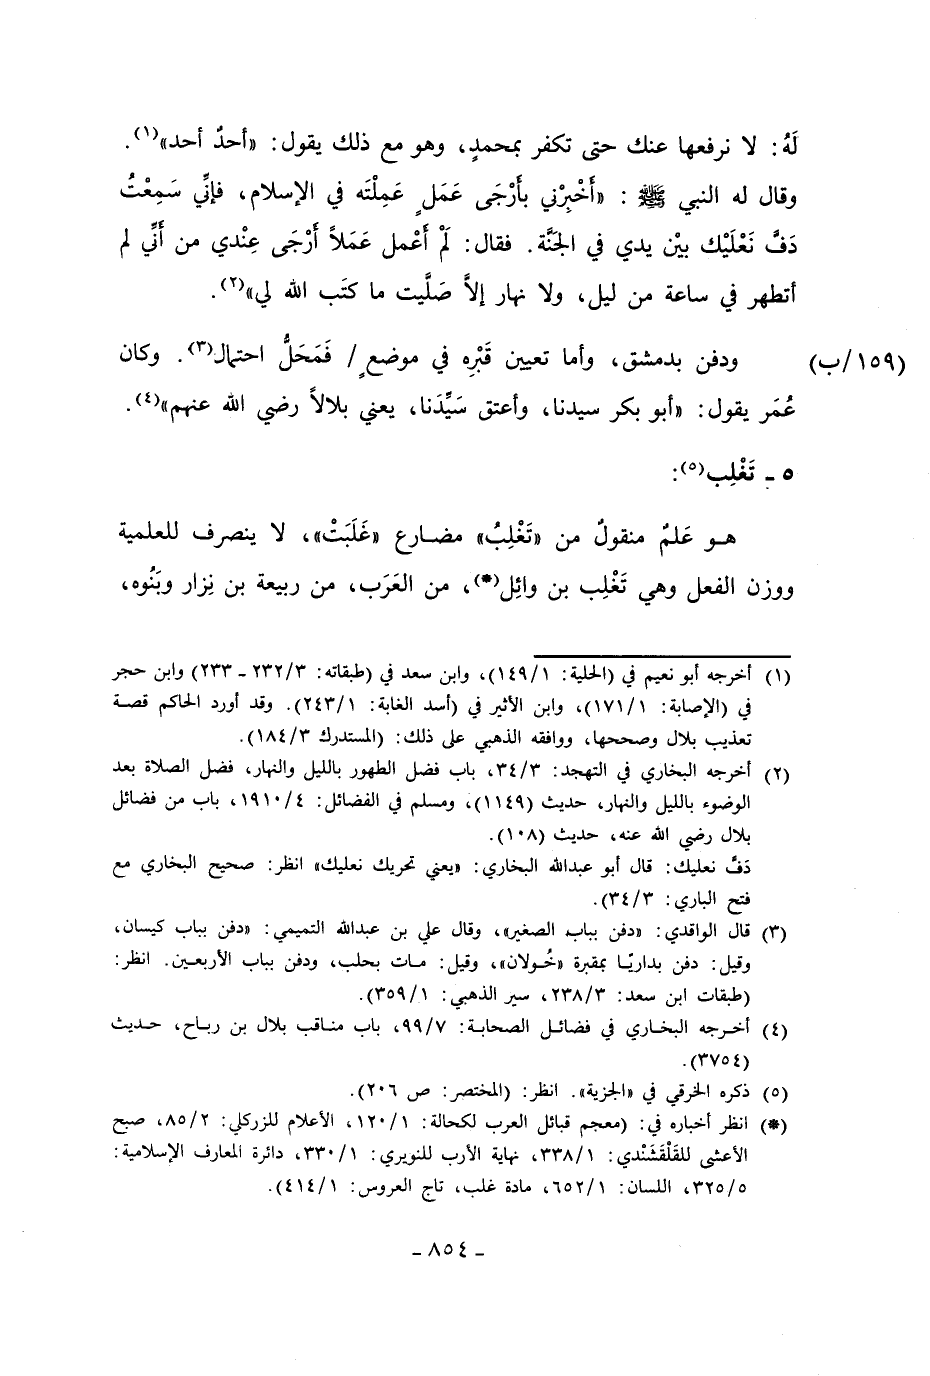 لَهُ: لا نرفعها عنك حتى تكفر بمحمدٍ، وهو مع ذلك يقول: «أحدٌ أحد»(١).
وقال له النبي ﷺ : «أَخْبِرْني بأَرْجَى عَمَلٍ عَمِلْتَه في الإسلام، فإنِّي سَمِعْتُ
دَفَّ نَعْلَيْك بيْن يدي في الجَنَّة. فقال: لَمْ أَعْمل عَمَلاً أَرْجَى عِنْدي من أَنِّي لم
أتطهر في ساعة من ليل، ولا نهار إلاَّ صَلَّيت ما كتَب الله لي»(٢).
(١٥٩/ب) ودفن بدمشق، وأما تعيين قَبْرِه في موضعٍ / فَمَحَلُّ احتمال(٣). وكان
عُمَر يقول: «أبو بكر سيدنا، وأعتق سَيِّدَنا، يعني بلالاً رضي الله عنهم»(٤).
٥ ـ تَغْلِب(٥):
هـو عَلمٌ منقولٌ من «تَغْلِبُ» مضـارع «غَلَبَتْ»، لا ينصرف للعلمية
ووزن الفعل وهي تَغْلِب بن وائِل(*)، من العَرَب، من ربيعة بن نِزار وبَنُوه،
(١) أخرجه أبو نعيم في (الحلية: ١٤٩/١)، وابن سعد في (طبقاته: ٢٣٢/٣ ـ ٢٣٣) وابن حجر
في (الإصابة: ١٧١/١)، وابن الأثير في (أسد الغابة: ٢٤٣/١). وقد أورد الحاكم قصـة
تعذيب بلال وصححها، ووافقه الذهبي على ذلك: (المستدرك ١٨٤/٣).
(٢) أخرجه البخاري في التهجد: ٣٤/٣، باب فضل الطهور بالليل والنهار، فضل الصلاة بعد
الوضوء بالليل والنهار، حديث (١١٤٩)، ومسلم في الفضائل: ١٩١٠/٤، باب من فضائل
بلال رضي الله عنه، حديث (١٠٨).
دَفَّ نعليك: قال أبو عبدالله البخاري: «يعني تحريك نعليك» انظر: صحيح البخاري مع
فتح الباري: ٣٤/٣).
(٣) قال الواقدي: «دفن بباب الصغير»، وقال علي بن عبدالله التميمي: «دفن بباب كيسان،
وقيل: دفن بداريّا بمقبرة «خُـولان»، وقيل: مـات بحلب، ودفن بباب الأربعـين. انظر:
(طبقات ابن سعد: ٢٣٨/٣، سير الذهبي: ٣٥٩/١).
(٤) أخـرجه البخـاري في فضائـل الصحابـة: ٩٩/٧، باب منـاقب بلال بن ربـاح، حـديث
(٣٧٥٤).
(٥) ذكره الخرقي في «الجزية». انظر: (المختصر: ص ٢٠٦).
(*) انظر أخباره في: (معجم قبائل العرب لكحالة: ١٢٠/١، الأعلام للزركلي: ٨٥/٢، صبح
الأعشى للقَلْقَشَندي: ٣٣٨/١، نهاية الأرب للنويري: ٣٣٠/١، دائرة المعارف الإسلامية:
٣٢٥/٥، اللسان: ٦٥٢/١، مادة غلب، تاج العروس: ٤١٤/١).
ـ ٨٥٤ ـ